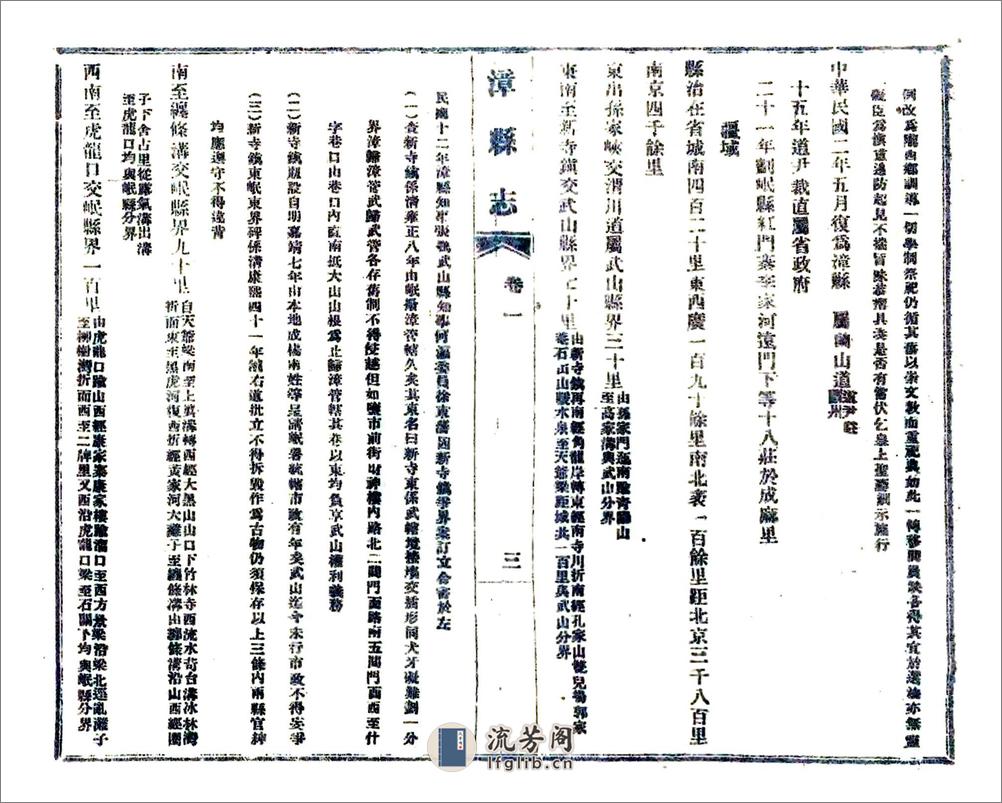 例改爲隴西鄉訓導一切學制祭祀仍循其舊以崇文教而重祀典如此一轉移間員缺各得其宜於選法亦無靈
礙臣爲愼重邊防起見不揣冒昧恭摺具奏是否有當伏乞皇上聖鑒訓示施行
中華民國二年五月復爲漳縣 屬蘭山道
十五年道尹裁直屬省政府
二十一年劃岷縣紅門寨李家河遠門下等十八莊於成麻里
疆域
縣治在省城南四百二十里東西廣一百九十餘里南北袤一百餘里距北京三千八百里
南京四千餘里
東出孫家峽交渭川道屬武山縣界三十里 由孫家門迤南險青陽山
至高家溝與武山分界
東南至新寺鎭交武山縣界七十里 由新寺鎭再南經角龍岸轉東經南寺川折南經孔家山
石山山暖水泉至天爺梁距城共一百里與武山分界
漳縣志 卷一 三
民國十二年漳縣知事張 武山縣知事何 委員徐 因新寺鎭爭界案訂立合書於左
(一)查新寺鎭係清雍正八年由岷撥漳管轄久矣其東名曰新寺東係武轄境樓塲交插形同犬牙礙難劃一分
界漳歸漳管武歸武管各存舊制不得徒越但如鹽市前街財神樓內路北二間門面路南五間門面西至什
字巷口山巷口內直南抵大山山根爲止歸漳管轄其在以東均負享武山權利義務
(二)新寺鎭設自明嘉靖七年由本地成楊兩姓等呈請岷署統轄市政有年矣武山迄今未行市政不得妄爭
(三)新寺鎭東岷東界碑係清康熙四十一年道批立不得拆毀作爲古物仍須保存以上三條內兩縣官紳
均應遵守不得違背
南至纏條溝交岷縣界九十里 自天爺梁南至上眞溝轉西經大黑山山口下竹林寺西流水苟台溝冰林灣
折而東至黑虎河復西折經黃家河大灘子至纏條溝由纏條溝沿山西經圈
子下舍占里從露氣溝出溝
至虎龍口均與岷縣分界
西南至虎龍口交岷縣界一百里 由虎龍口險山西經康家寨康家樓險溜口至西方景梁沿梁北逕亂灘子
至柳樹灣折而西至二牌里又西沿虎龍口梁至石關下均與岷縣分界
流芳阁
lfglib.cn